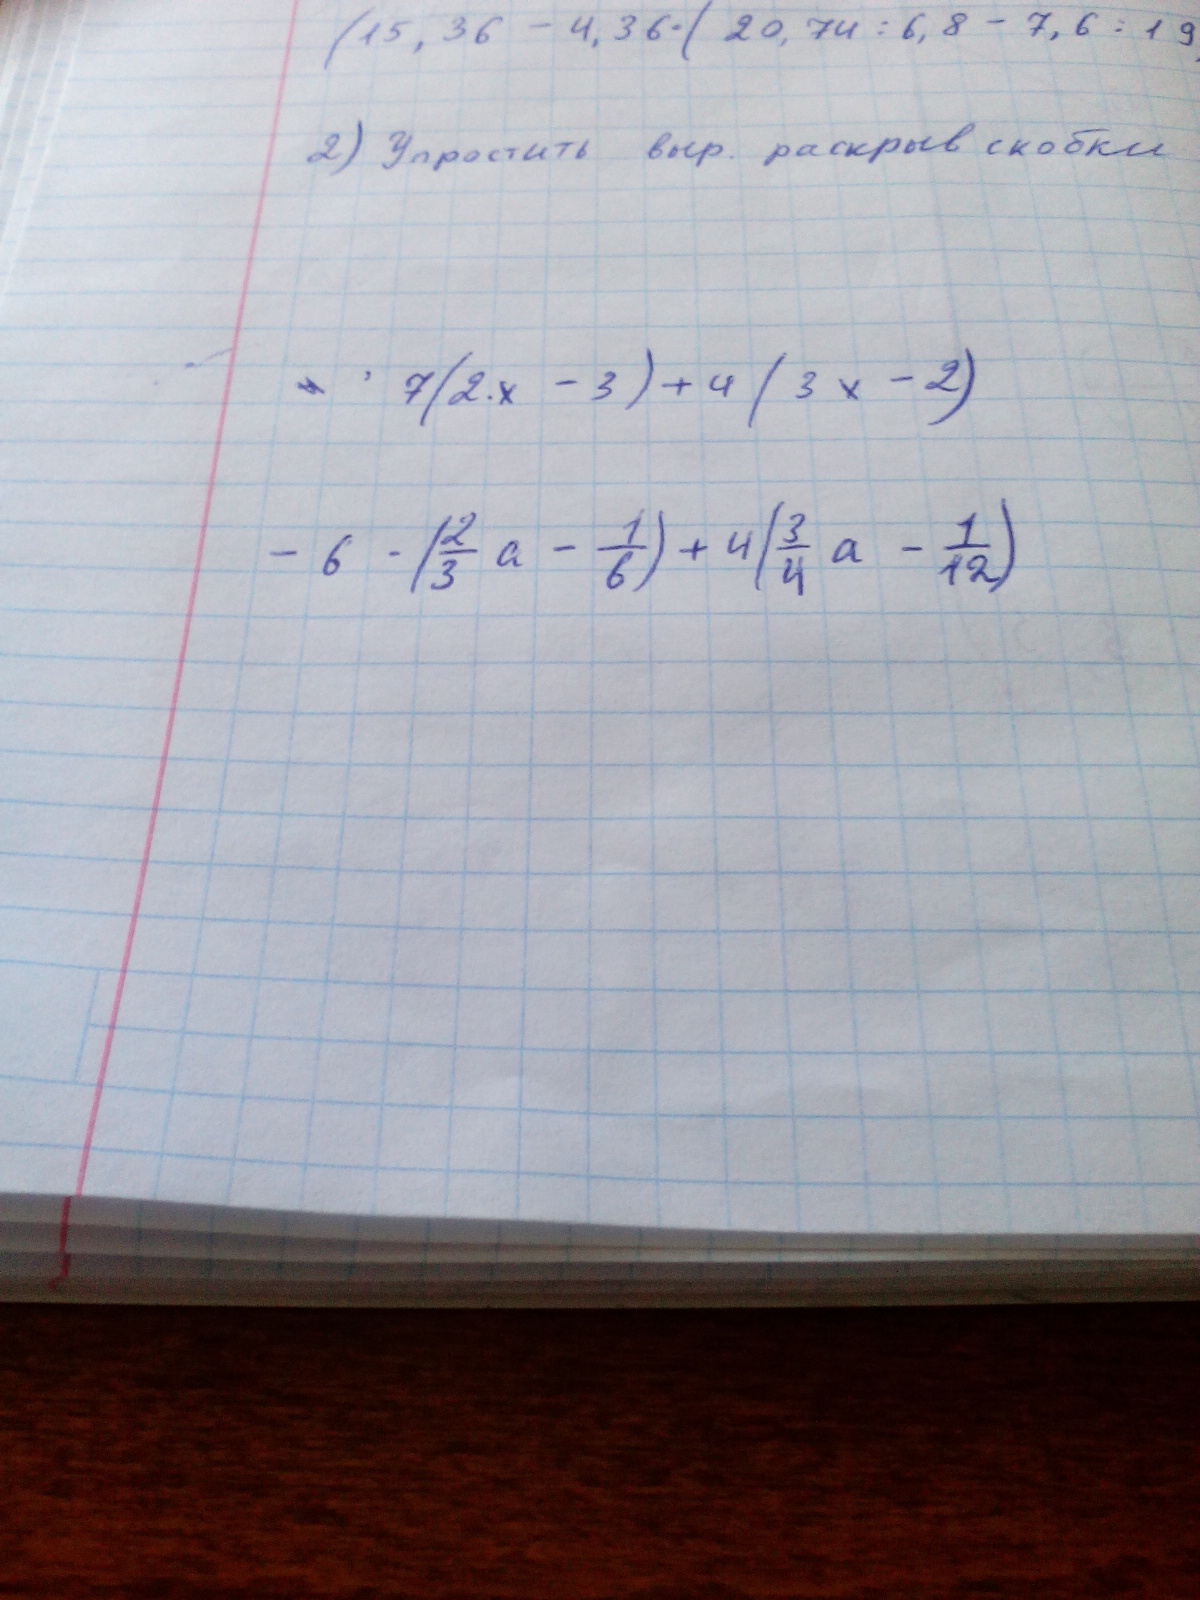 (15,36 - 4,36·(20,74:6,8 - 7,6:19)
2) Упростить выр. раскрыв скобки
7(2·x - 3)+4(3x - 2)
- 6 · (2/3 a - 1/6) + 4(3/4 a - 1/12)